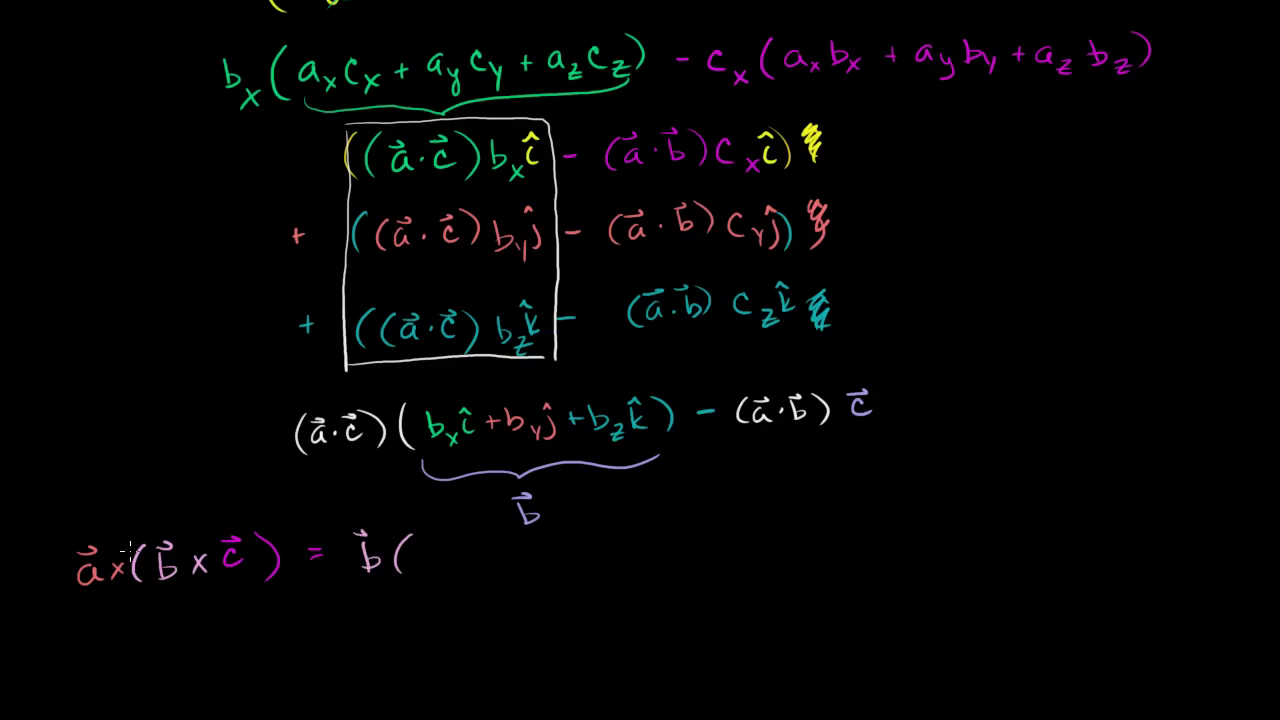 b_x(a_x c_x + a_y c_y + a_z c_z) - c_x(a_x b_x + a_y b_y + a_z b_z)
((a⃗·c⃗)b_x î - (a⃗·b⃗)c_x î)
+ ((a⃗·c⃗)b_y ĵ - (a⃗·b⃗)c_y ĵ)
+ ((a⃗·c⃗)b_z k̂ - (a⃗·b⃗)c_z k̂
(a⃗·c⃗)(b_x î + b_y ĵ + b_z k̂) - (a⃗·b⃗)c⃗
b⃗
a⃗×(b⃗×c⃗) = b⃗(